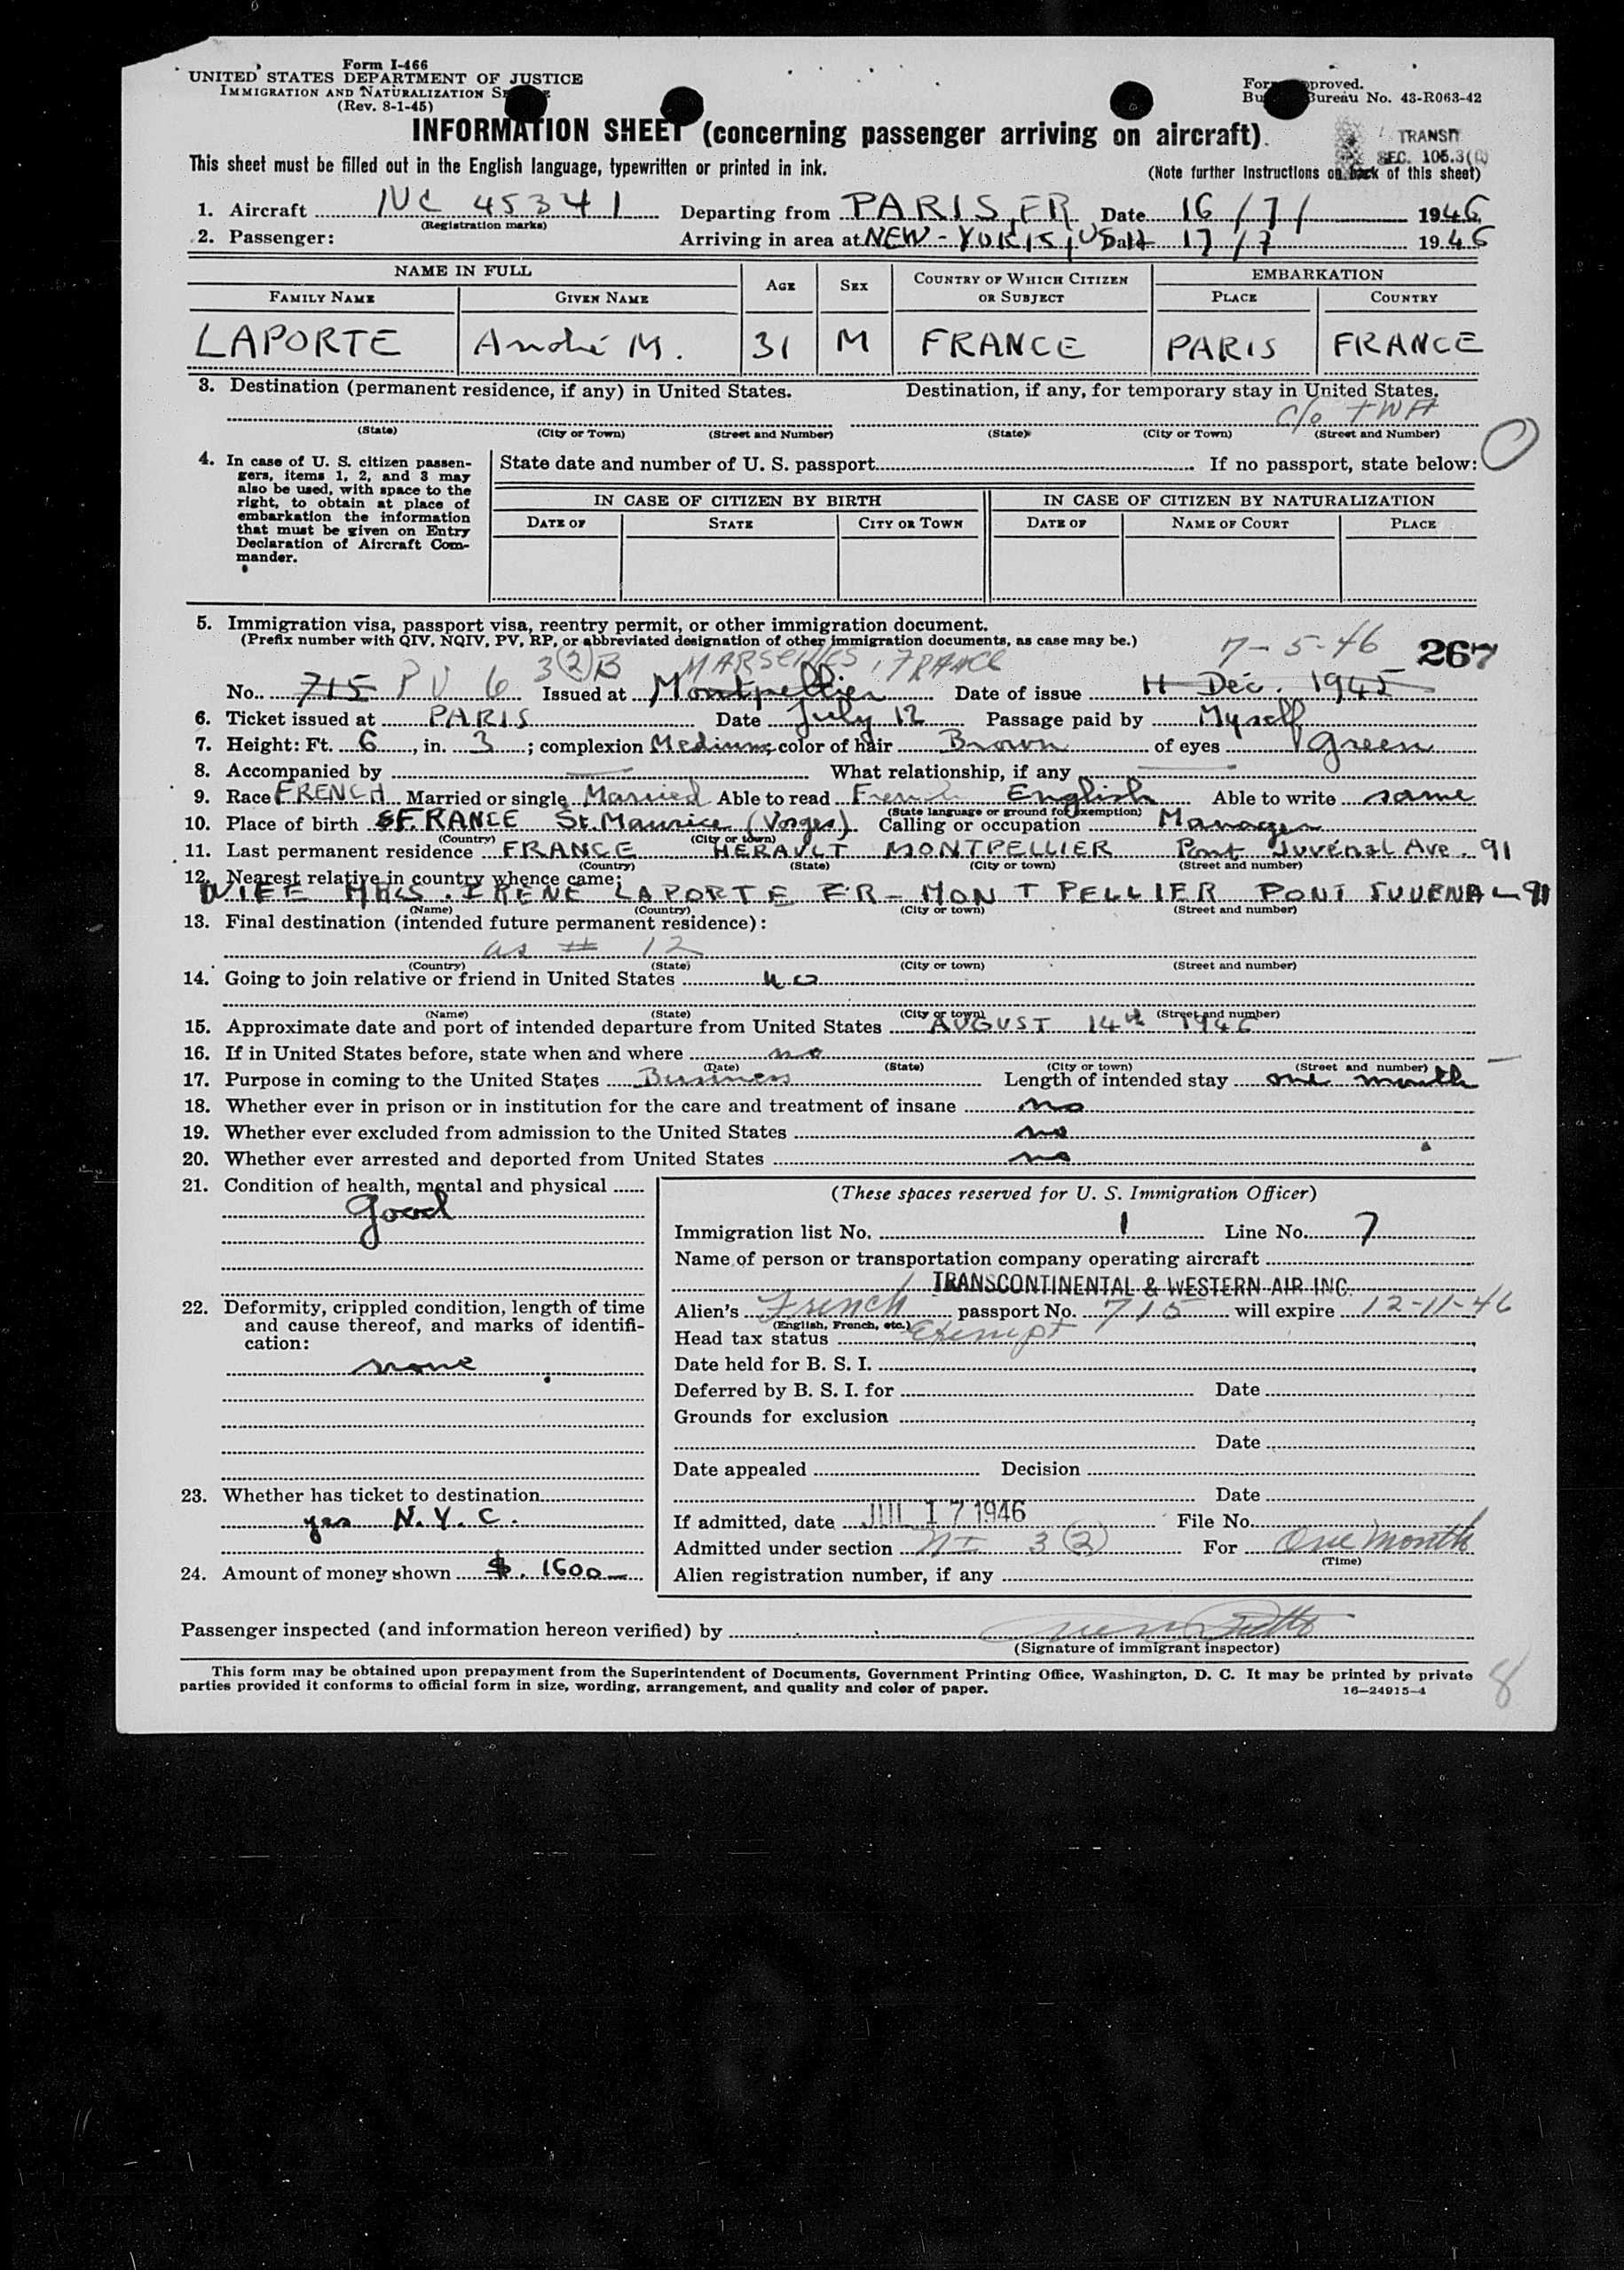 Form I-466
UNITED STATES DEPARTMENT OF JUSTICE
IMMIGRATION AND NATURALIZATION
(Rev. 8-1-45)
Form Approved.
Bureau No. 43-R063-42
INFORMATION SHEET (concerning passenger arriving on aircraft)
TRANSIT
SEC. 105.3
This sheet must be filled out in the English language, typewritten or printed in ink.
(Note further instructions on back of this sheet)
1. Aircraft NC 45341 Departing from PARIS, FR Date 16/7/ 1946
(Registration marks)
2. Passenger: Arriving in area at NEW-YORK, USA Date 17/7 1946
NAME IN FULL AGE SEX COUNTRY OF WHICH CITIZEN OR SUBJECT EMBARKATION
FAMILY NAME GIVEN NAME PLACE COUNTRY
LAPORTE André M. 31 M FRANCE PARIS FRANCE
3. Destination (permanent residence, if any) in United States. Destination, if any, for temporary stay in United States.
c/o TWA
(State) (City or Town) (Street and Number) (State) (City or Town) (Street and Number)
4. In case of U. S. citizen passengers, items 1, 2, and 3 may also be used, with space to the right, to obtain at place of embarkation the information that must be given on Entry Declaration of Aircraft Commander.
State date and number of U. S. passport If no passport, state below:
IN CASE OF CITIZEN BY BIRTH IN CASE OF CITIZEN BY NATURALIZATION
DATE OF STATE CITY OR TOWN DATE OF NAME OF COURT PLACE
5. Immigration visa, passport visa, reentry permit, or other immigration document.
(Prefix number with QIV, NQIV, PV, RP, or abbreviated designation of other immigration documents, as case may be.)
3(2)B MARSEILLES, FRANCE 7-5-46 267
No. 715 PV 6 Issued at Montpellier Date of issue 11 Déc. 1945
6. Ticket issued at PARIS Date July 12 Passage paid by Myself
7. Height: Ft. 6, in. 3; complexion Medium; color of hair Brown of eyes green
8. Accompanied by — What relationship, if any —
9. Race FRENCH Married or single Married Able to read French English Able to write same
(State language or ground for exemption)
10. Place of birth FRANCE St. Maurice (Vosges) Calling or occupation Manager
(Country) (City or town)
11. Last permanent residence FRANCE HERAULT MONTPELLIER Pont Juvénal Ave. 91
(Country) (State) (City or town) (Street and number)
12. Nearest relative in country whence came:
WIFE MRS. IRENE LAPORTE FR- MONTPELLIER PONT JUVENAL 91
(Name) (Country) (City or town) (Street and number)
13. Final destination (intended future permanent residence):
as # 12
(Country) (State) (City or town) (Street and number)
14. Going to join relative or friend in United States no
(Name) (State) (City or town) (Street and number)
15. Approximate date and port of intended departure from United States AUGUST 14th 1946
16. If in United States before, state when and where no
(Date) (State) (City or town) (Street and number)
17. Purpose in coming to the United States Business Length of intended stay one month
18. Whether ever in prison or in institution for the care and treatment of insane no
19. Whether ever excluded from admission to the United States no
20. Whether ever arrested and deported from United States no
21. Condition of health, mental and physical
good
22. Deformity, crippled condition, length of time and cause thereof, and marks of identification:
none
23. Whether has ticket to destination
yes N.Y.C.
24. Amount of money shown $. 1600—
(These spaces reserved for U. S. Immigration Officer)
Immigration list No. 1 Line No. 7
Name of person or transportation company operating aircraft
TRANSCONTINENTAL & WESTERN AIR INC.
Alien's French passport No. 715 will expire 12-11-46
(English, French, etc.)
Head tax status Exempt
Date held for B. S. I.
Deferred by B. S. I. for Date
Grounds for exclusion
Date
Date appealed Decision
Date
If admitted, date JUL 17 1946 File No.
Admitted under section NI 3(2) For One Month
(Time)
Alien registration number, if any
Passenger inspected (and information hereon verified) by
(Signature of immigrant inspector)
This form may be obtained upon prepayment from the Superintendent of Documents, Government Printing Office, Washington, D. C. It may be printed by private
parties provided it conforms to official form in size, wording, arrangement, and quality and color of paper.
16—24915-4
8